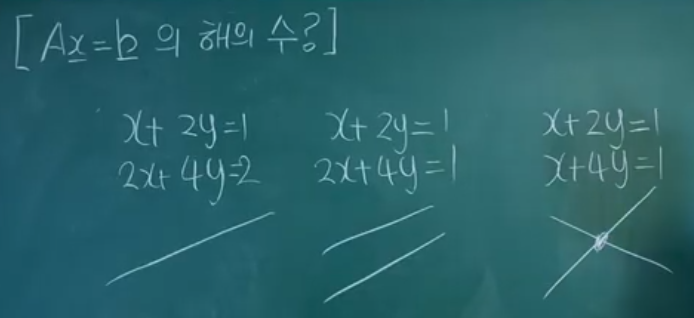 [Ax=b 의 해의 수?]
x+2y=1 x+2y=1 x+2y=1
2x+4y=2 2x+4y=1 x+4y=1